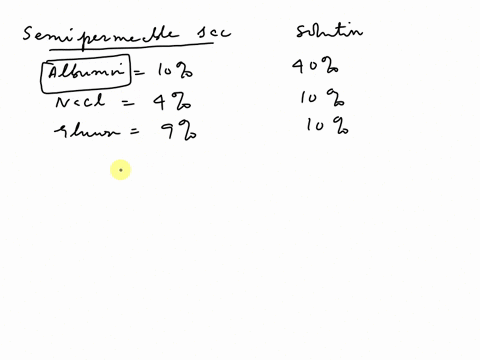 Semipermeable sac solution
Albumin = 10% 40%
NaCl = 4% 10%
= 9% 10%